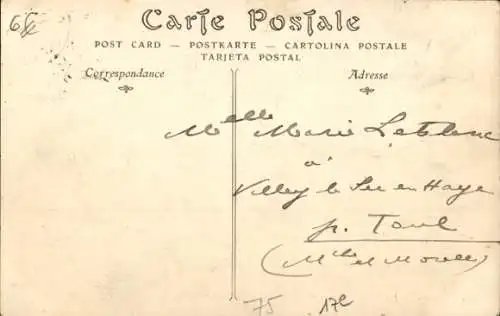 Carte Postale
POST CARD — POSTKARTE — CARTOLINA POSTALE
TARJETA POSTAL
Correspondance
Adresse
Melle Marie Leblanc
à
Villey le Sec en Haye
p. Toul
(Mthe et Moselle)
75
17e